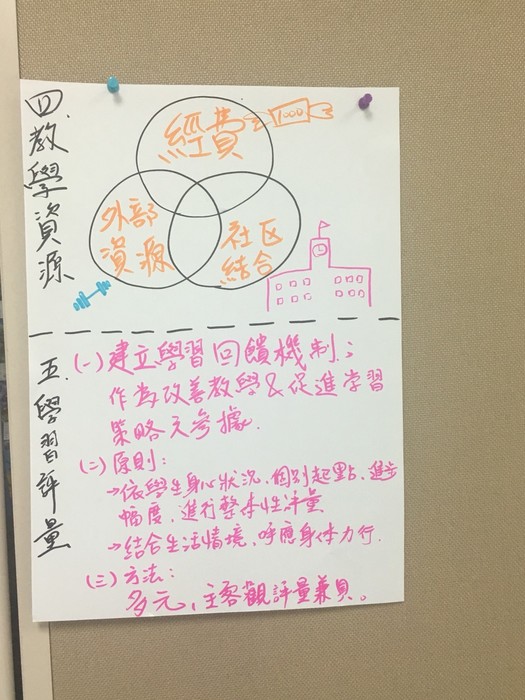 四.教學資源
經費
1000
外部
資源
社区
結合
五.學習評量
(一)建立學習回饋機制;
作為改善教學&促進学習
策略之參據.
(二)原則:
→依學生身心狀況、個別起點、進步
幅度、進行整体性评量
→結合生活情境、呼應身体力行.
(三)方法:
多元、主客觀評量兼具。